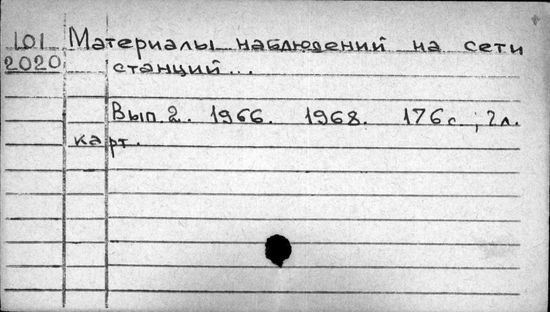 101 Материалы наблюдений на сети
2020 станций...
Вып. 2. 1966. 1968. 176 с.; 2 л.
карт.